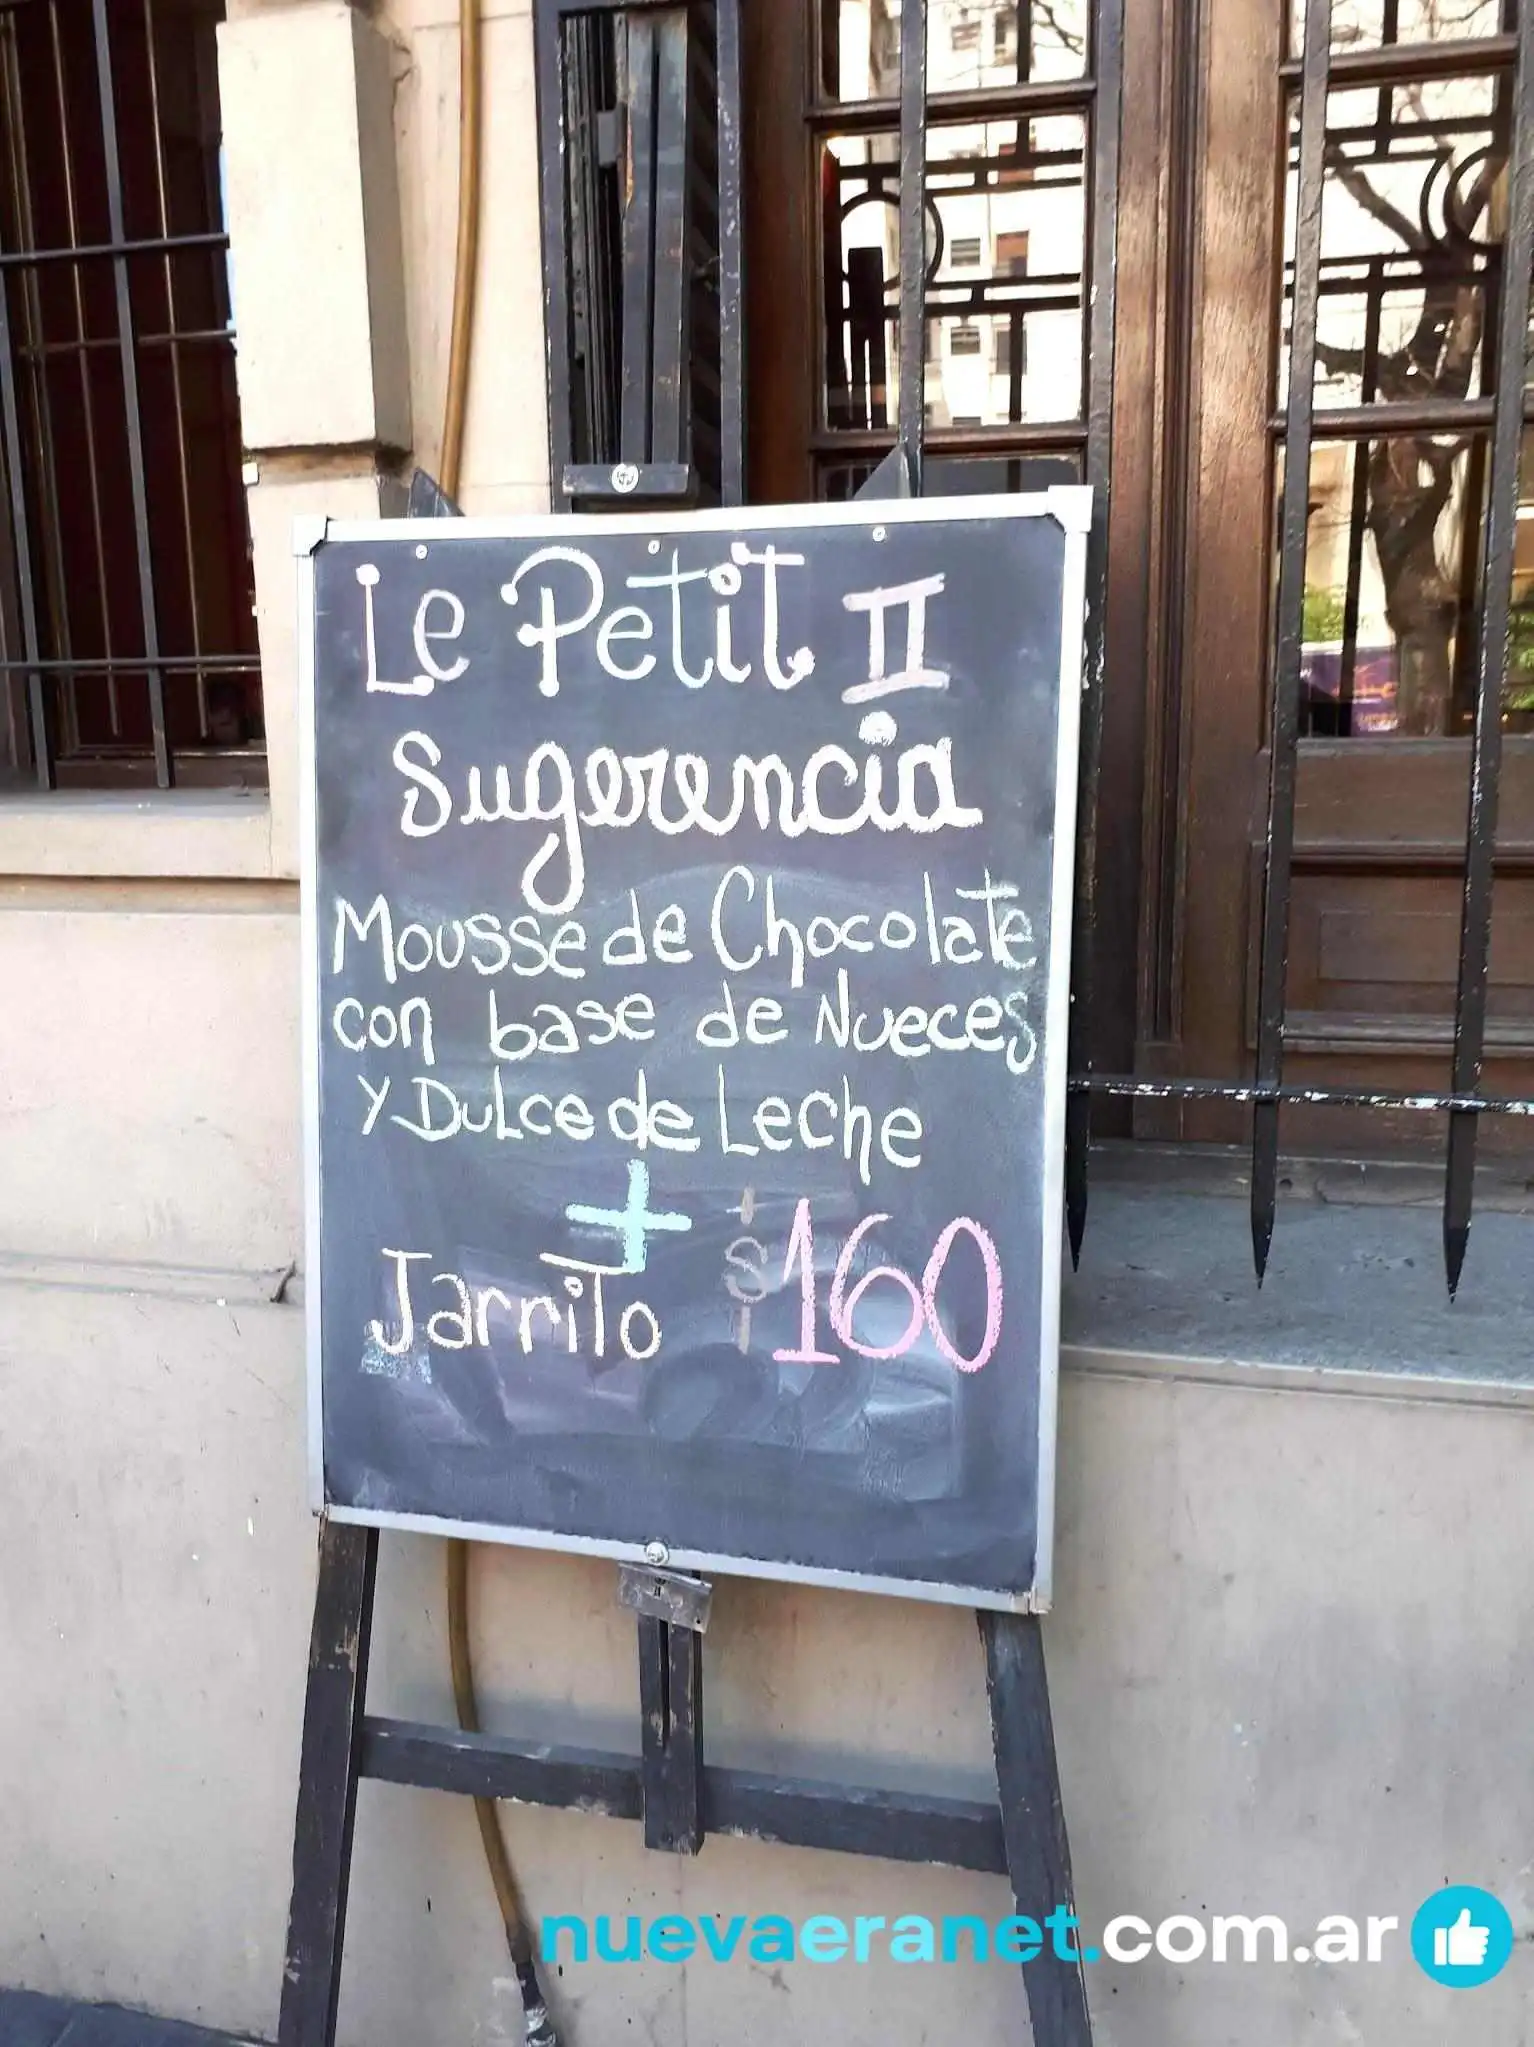 Le Petit II
Sugerencia
Mousse de Chocolate
con base de Nueces
y Dulce de Leche
+
Jarrito $160
nuevaeranet.com.ar